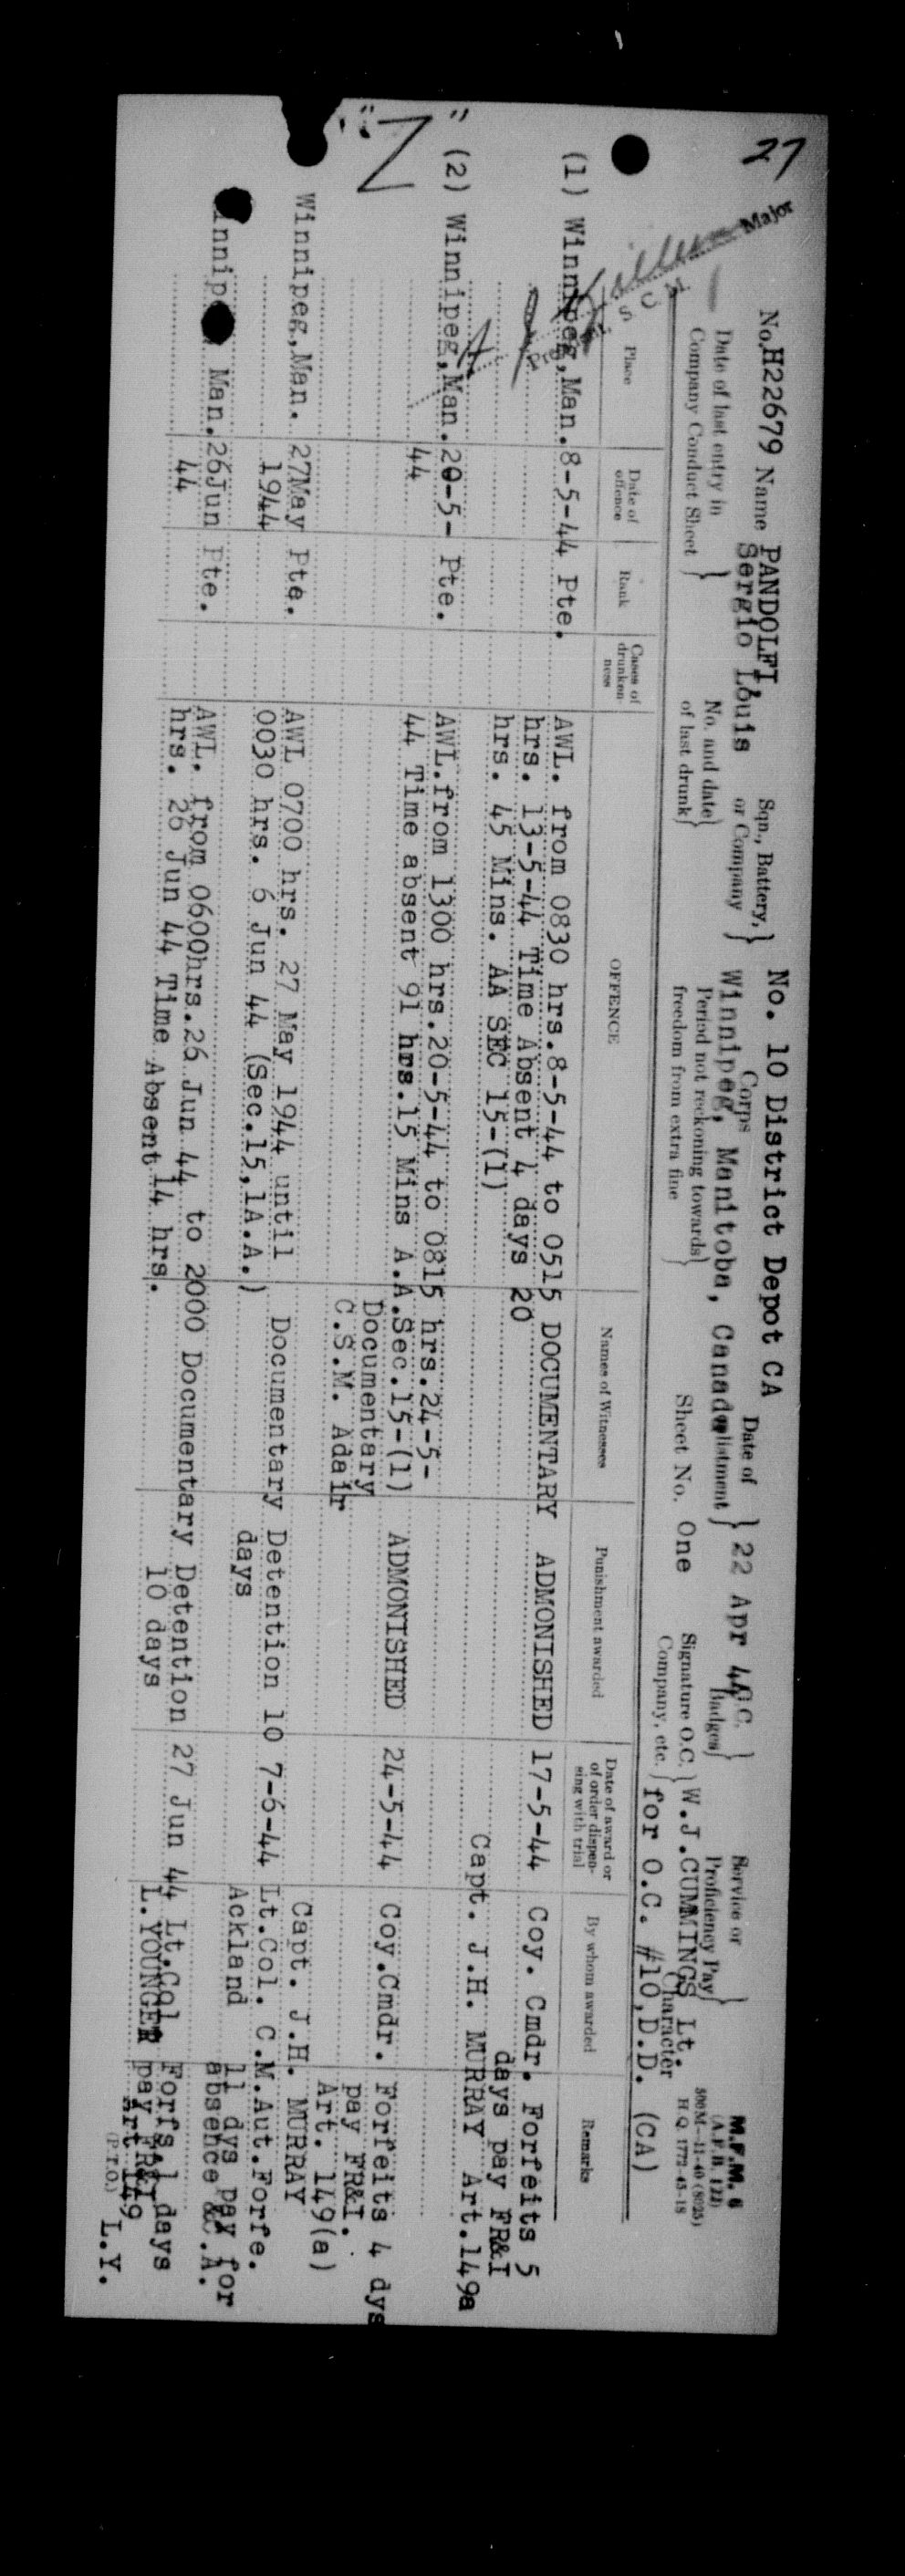 27
Major
President, S C M
M.F.M. 6
(A.F.B. 122)
500M—11-40 (8025)
H.Q. 1772-45-18
No. H22679 Name PANDOLFI, Sergio Louis
Sqn., Battery, or Company
No. 10 District Depot CA
Corps
Winnipeg, Manitoba, Canada
Date of enlistment 22 Apr 44
G.C. Badges
Service or Proficiency Pay
Date of last entry in Company Conduct Sheet
No. and date of last drunk
Period not reckoning towards freedom from extra fine
Sheet No. One
Signature O.C. Company, etc. W.J.CUMMINGS Lt.
for O.C. #10,D.D. (CA)
Character
Place
Date of offence
Rank
Cases of drunkenness
OFFENCE
Names of Witnesses
Punishment awarded
Date of award or of order dispensing with trial
By whom awarded
Remarks
(1) Winnipeg,Man. 8-5-44 Pte. AWL. from 0830 hrs.8-5-44 to 0515 DOCUMENTARY ADMONISHED 17-5-44 Coy. Cmdr. Forfeits 5
hrs. 13-5-44 Time Absent 4 days 20 days pay FR&I
hrs. 45 Mins. AA SEC 15-(1) Capt. J.H. MURRAY Art.149a
"Z"
(2) Winnipeg,Man. 20-5- Pte. AWL.from 1300 hrs.20-5-44 to 0815 hrs.24-5-
44 44 Time absent 91 hrs.15 Mins A.A.Sec.15-(1) ADMONISHED 24-5-44 Coy.Cmdr. Forfeits 4 dys
Documentary pay FR&I.
C.S.M. Adair Art. 149(a)
Capt. J.H. MURRAY
Winnipeg,Man. 27May Pte. AWL 0700 hrs. 27 May 1944 until Documentary Detention 10 7-6-44 Lt.Col. C.M. Aut.Forfe.
1944 0030 hrs. 6 Jun 44 (Sec.15,1A.A.) days Ackland 11 dys pay for
absence &C.A.
Winnipeg Man. 26Jun Pte. AWL. from 0600hrs.26 Jun 44 to 2000 Documentary Detention 27 Jun 44 Lt.Col Forfs 1 days
44 hrs. 26 Jun 44 Time Absent 14 hrs. 10 days L. YOUNGER pay FR&I
Art 149
(P.T.O.) L.Y.